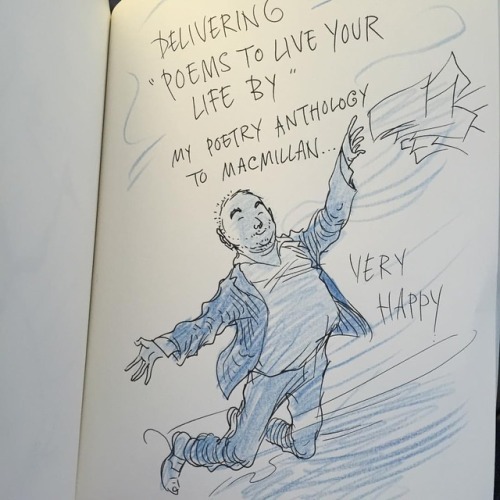 DELIVERING
"POEMS TO LIVE YOUR
LIFE BY"
MY POETRY ANTHOLOGY
TO MACMILLAN...
VERY
HAPPY